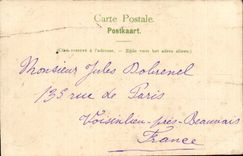 Carte Postale.
Postkaart.
(Côté réservé à l'adresse. — Zijde voor het adres alleen.)
Monsieur Jules
135 rue de Paris
Voisinlieu-près-Beauvais
France